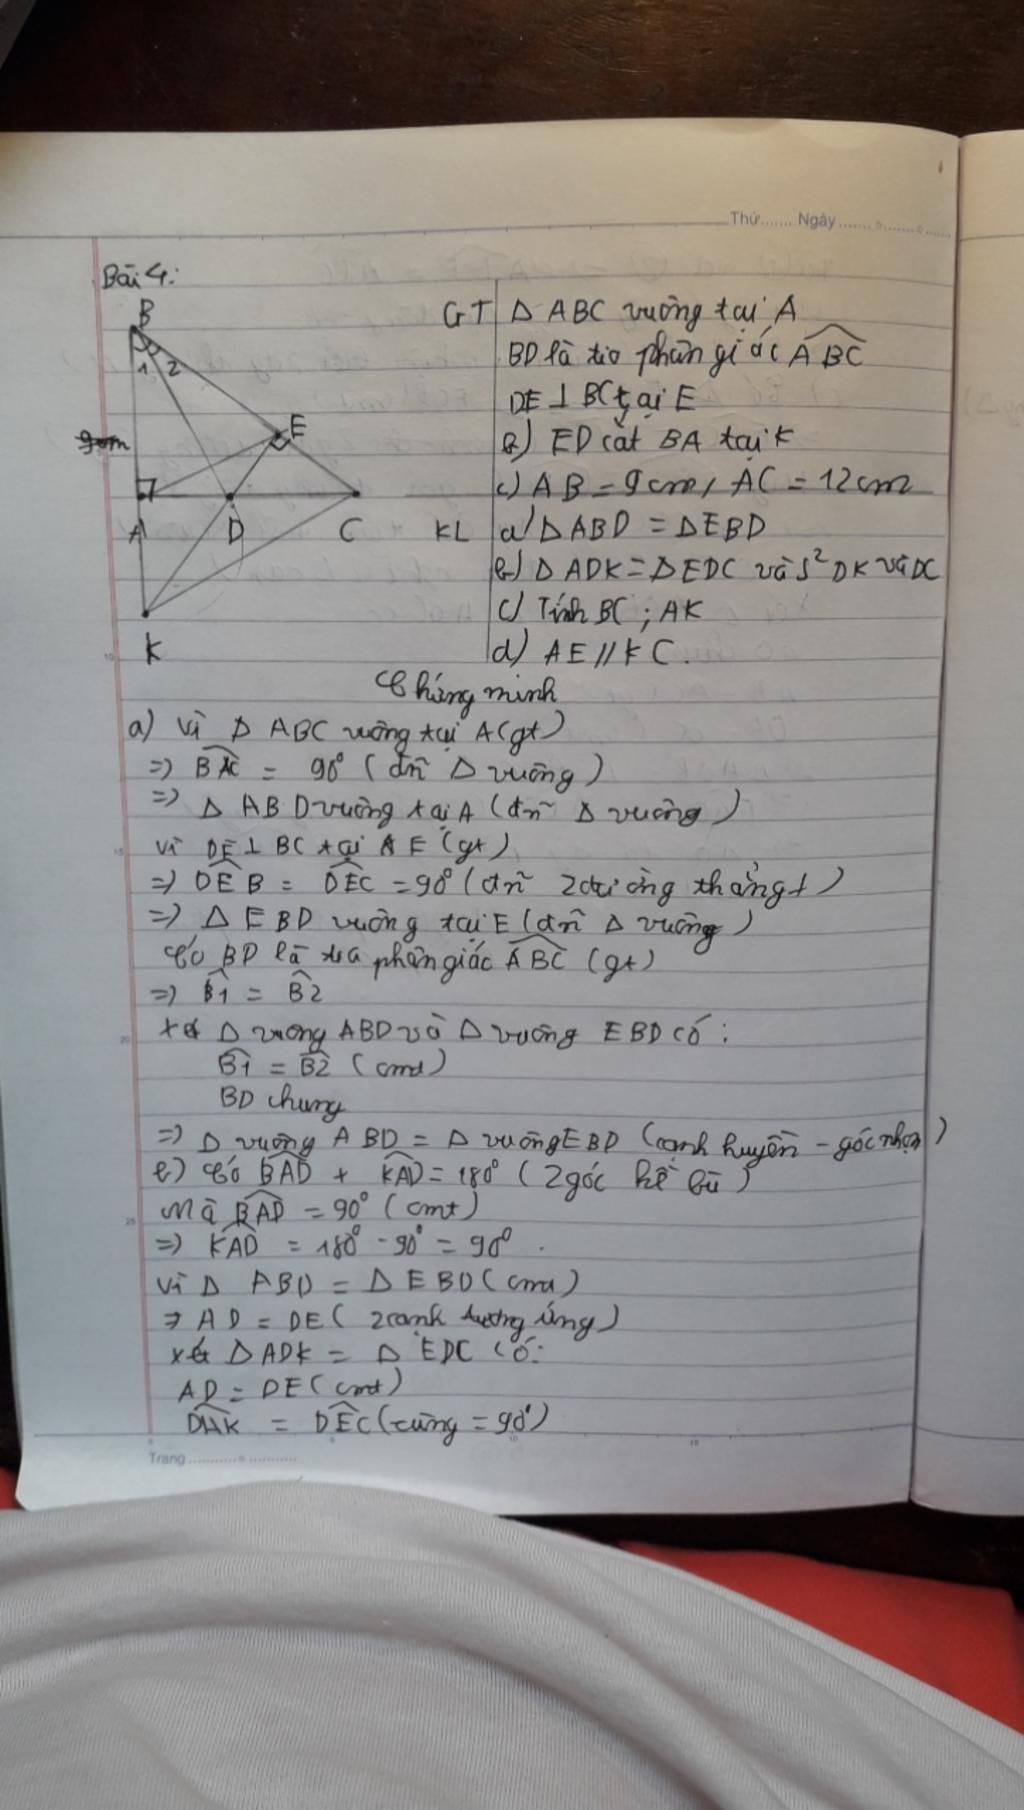 Thứ....... Ngày...............
Bài 4:
B
1 2
E
9cm
A D C
K
GT Δ ABC vuông tại A
BD là tia phân giác ABC
DE ⊥ BC tại E
b) ED cắt BA tại K
c) AB = 9cm, AC = 12cm
KL a) Δ ABD = Δ EBD
b) Δ ADK = Δ EDC và s² DK và DC
c) Tính BC ; AK
d) AE // KC.
Chứng minh
a) Vì Δ ABC vuông tại A (gt)
=> BAC = 90° (đn Δ vuông)
=> Δ ABD vuông tại A (đn Δ vuông)
Vì DE ⊥ BC tại E (gt)
=> DEB = DEC = 90° (đn 2 đường thẳng ⊥)
=> Δ EBD vuông tại E (đn Δ vuông)
Có BD là tia phân giác ABC (gt)
=> B1 = B2
Xét Δ vuông ABD và Δ vuông EBD có:
B1 = B2 (cmt)
BD chung
=> Δ vuông ABD = Δ vuông EBD (cạnh huyền - góc nhọn)
b) Có BAD + KAD = 180° (2 góc kề bù)
Mà BAD = 90° (cmt)
=> KAD = 180° - 90° = 90°.
Vì Δ ABD = Δ EBD (cma)
=> AD = DE (2 cạnh tương ứng)
Xét Δ ADK = Δ EDC có:
AD = DE (cmt)
DAK = DEC (cùng = 90°)
Trang ...............
10
15
20
25
5
10
15